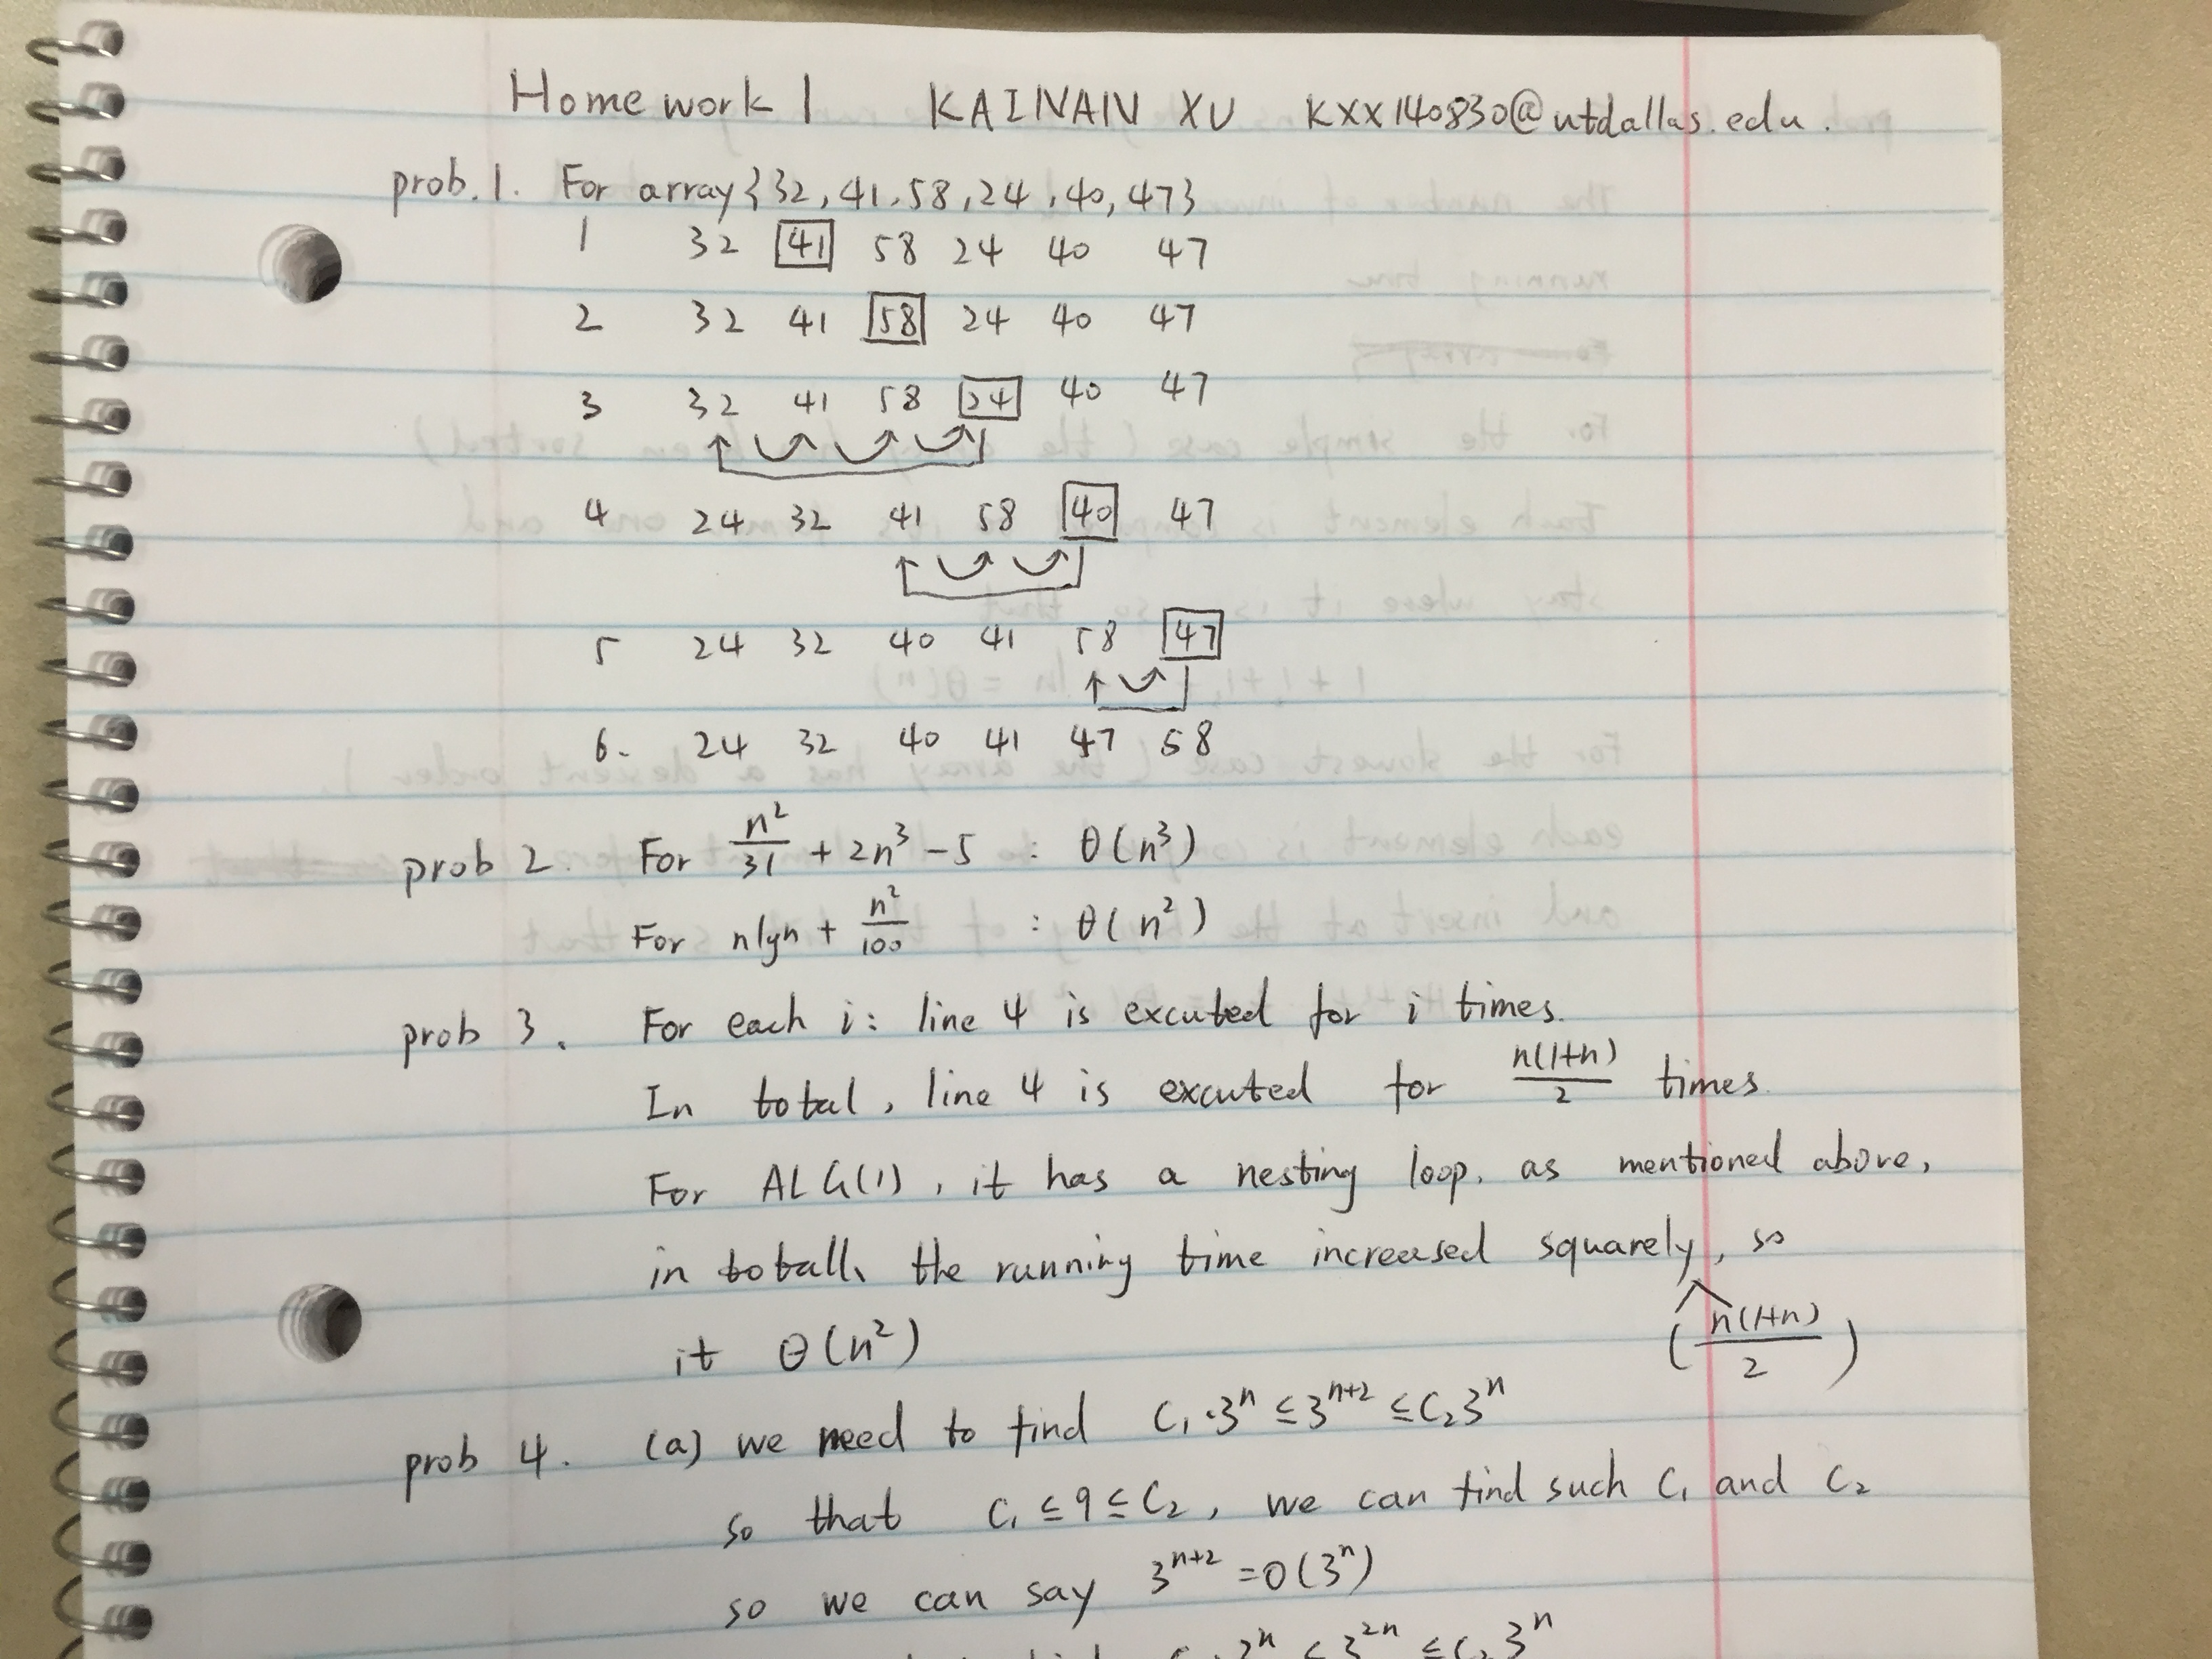 Homework 1 KAINAN XU kxx140830@utdallas.edu.
prob.1. For array{32,41,58,24,40,47}
1 32 41 58 24 40 47
2 32 41 58 24 40 47
3 32 41 58 24 40 47
4 24 32 41 58 40 47
5 24 32 40 41 58 47
6. 24 32 40 41 47 58
prob 2. For n²/31 + 2n³ - 5 : θ(n³)
For nlgn + n²/100 : θ(n²)
prob 3. For each i: line 4 is excuted for i times.
In total, line 4 is excuted for n(1+n)/2 times.
For ALG(1), it has a nesting loop. as mentioned above,
in totall, the running time increased squarely, so
(n(1+n)/2)
it θ(n²)
prob 4. (a) we need to find C₁·3ⁿ ≤ 3ⁿ⁺² ≤ C₂3ⁿ
so that C₁ ≤ 9 ≤ C₂, we can find such C₁ and C₂
so we can say 3ⁿ⁺² = O(3ⁿ)
3ⁿ ≤ 3²ⁿ ≤ C₂3ⁿ